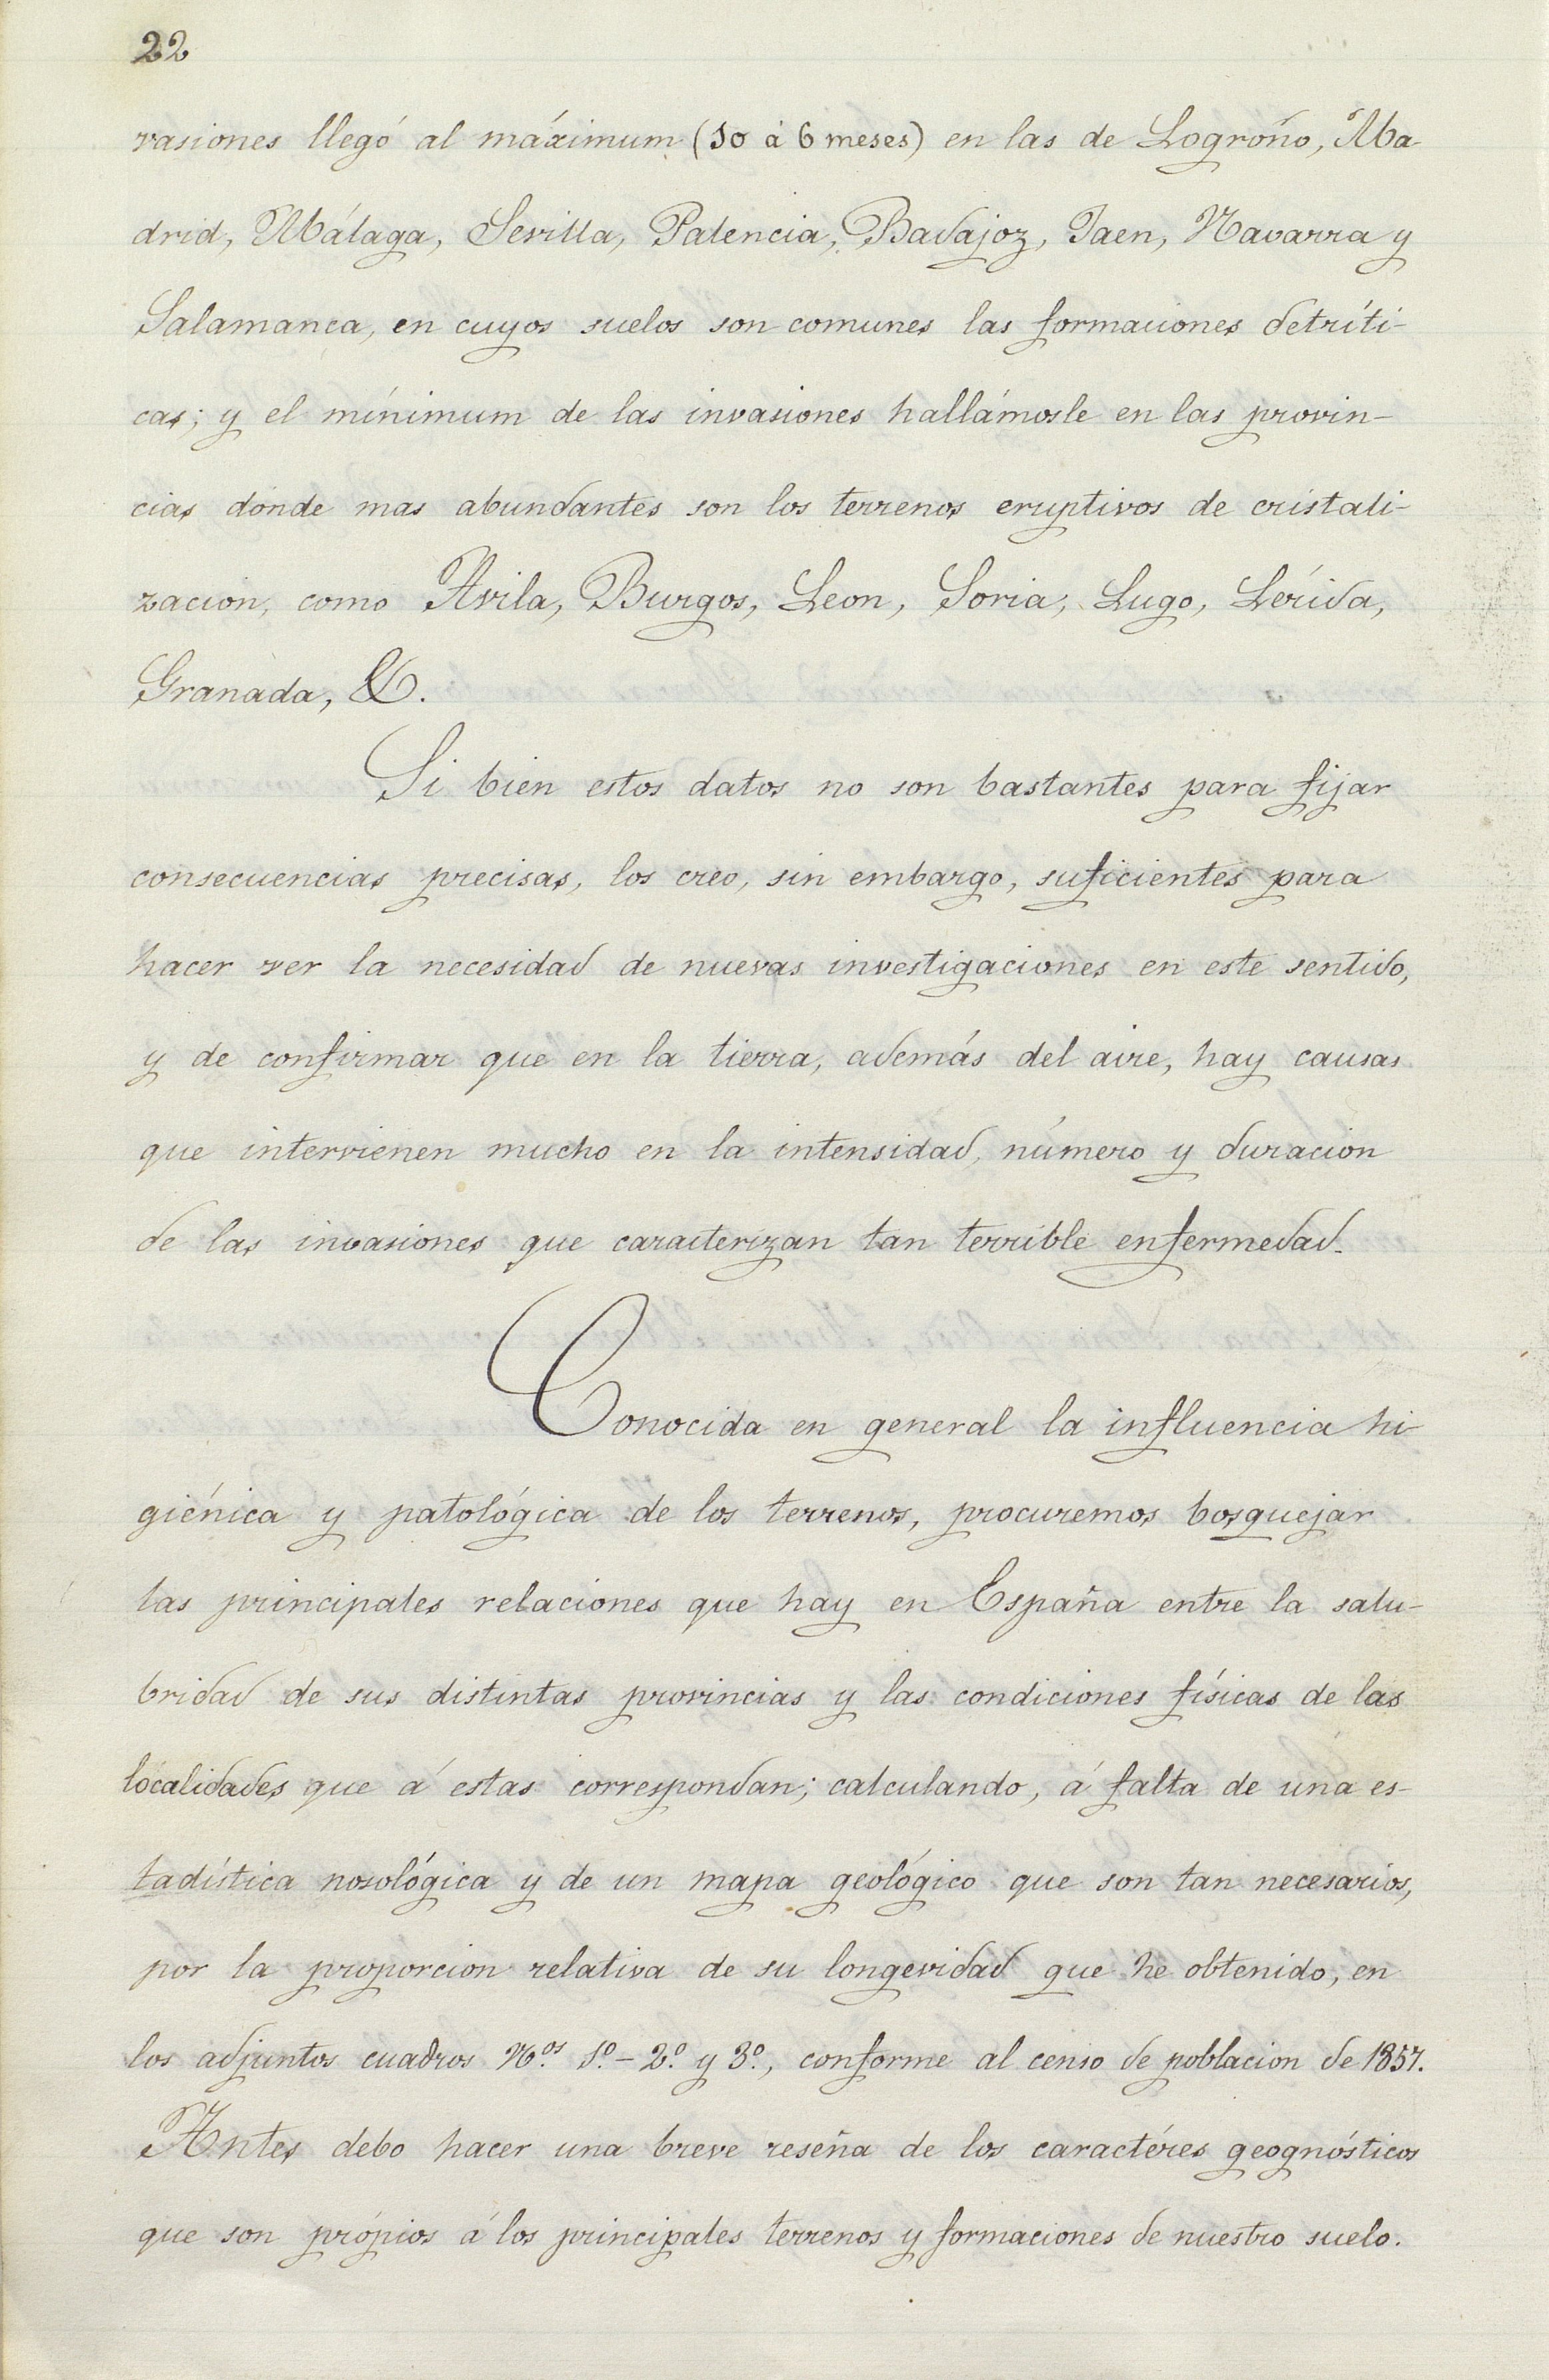 22
vasiones llegó al máximum (10 á 6 meses) en las de Logroño, Ma-
drid, Málaga, Sevilla, Palencia, Badajoz, Jaen, Navarra y
Salamanca, en cuyos suelos son comunes las formaciones detríti-
cas; y el mínimum de las invasiones hallámosle en las provin-
cias donde mas abundantes son los terrenos eruptivos de cristali-
zacion, como Avila, Burgos, Leon, Soria, Lugo, Lérida,
Granada, &.
Si bien estos datos no son bastantes para fijar
consecuencias precisas, los creo, sin embargo, suficientes para
hacer ver la necesidad de nuevas investigaciones en este sentido,
y de confirmar que en la tierra, además del aire, hay causas
que intervienen mucho en la intensidad, número y duracion
de las invasiones que caracterizan tan terrible enfermedad.
Conocida en general la influencia hi-
giénica y patológica de los terrenos, procuremos bosquejar
las principales relaciones que hay en España entre la salu-
bridad de sus distintas provincias y las condiciones físicas de las
localidades que á estas correspondan; calculando, á falta de una es-
tadística nosológica y de un mapa geológico que son tan necesarios,
por la proporcion relativa de su longevidad que he obtenido, en
los adjuntos cuadros N.os 1.º - 2.º y 3.º, conforme al censo de poblacion de 1857.
Antes debo hacer una breve reseña de los caractéres geognósticos
que son própios á los principales terrenos y formaciones de nuestro suelo.